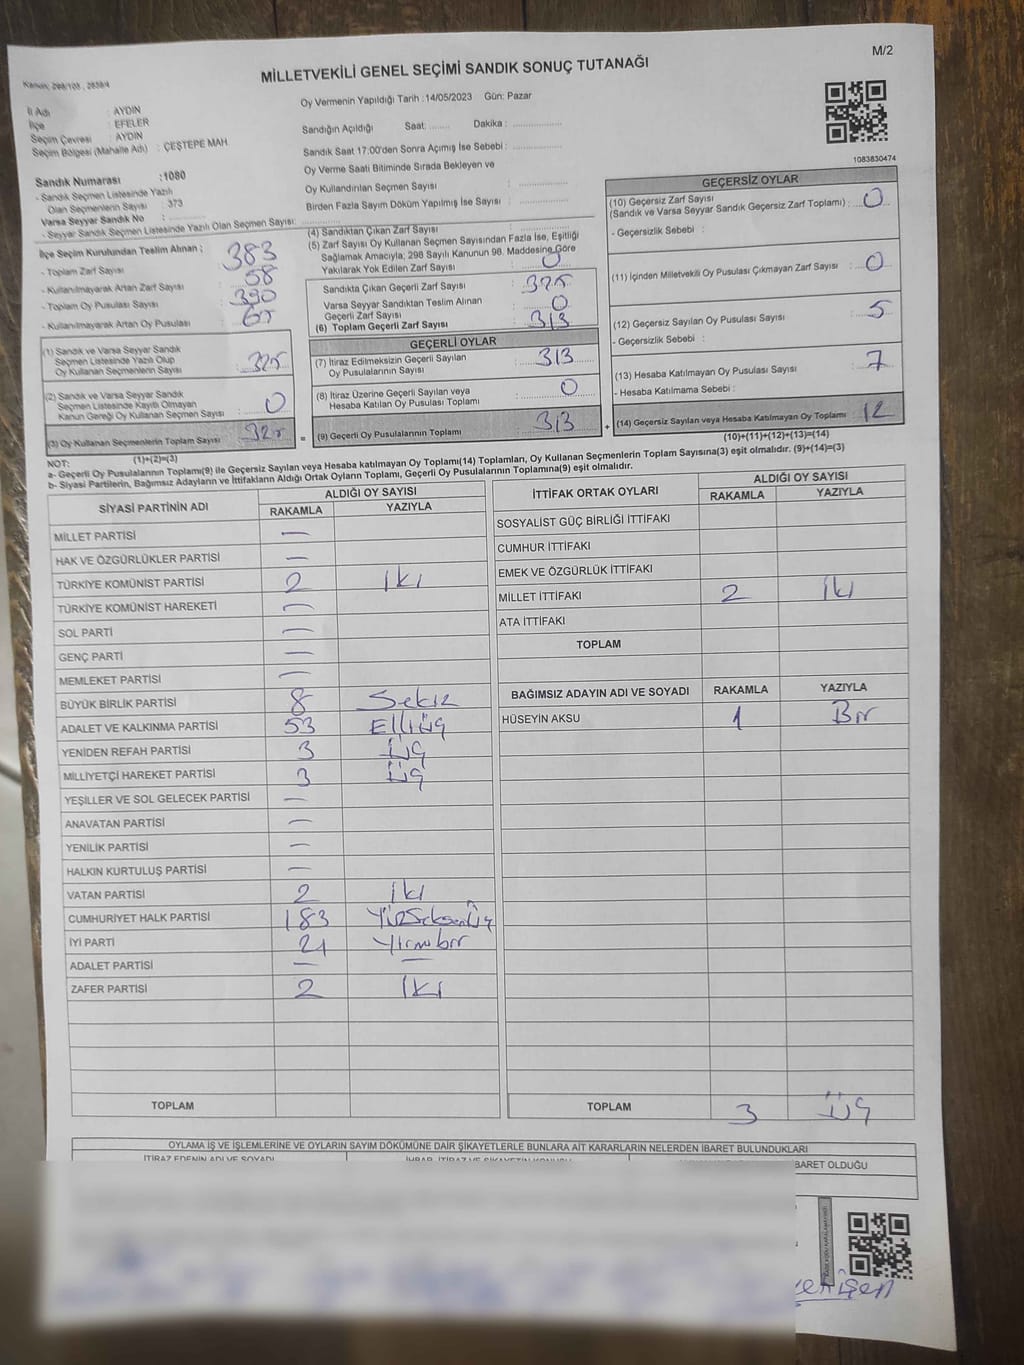 M/2
MİLLETVEKİLİ GENEL SEÇİMİ SANDIK SONUÇ TUTANAĞI
Kanun: 298/105, 2839/4
İl Adı : AYDIN
İlçe : EFELER
Seçim Çevresi : AYDIN
Seçim Bölgesi (Mahalle Adı) : ÇEŞTEPE MAH
Sandık Numarası :1080
- Sandık Seçmen Listesinde Yazılı
Olan Seçmenlerin Sayısı : 373
Varsa Seyyar Sandık No :
- Seyyar Sandık Seçmen Listesinde Yazılı Olan Seçmen Sayısı:
Oy Vermenin Yapıldığı Tarih :14/05/2023 Gün: Pazar
Sandığın Açıldığı Saat: Dakika :
Sandık Saat 17:00'den Sonra Açımış İse Sebebi :
Oy Verme Saati Bitiminde Sırada Bekleyen ve
Oy Kullandırılan Seçmen Sayısı :
Birden Fazla Sayım Döküm Yapılmış İse Sayısı :
1083830474
İlçe Seçim Kurulundan Teslim Alınan ;
- Toplam Zarf Sayısı : 383
- Kullanılmayarak Artan Zarf Sayısı : 58
- Toplam Oy Pusulası Sayısı : 390
- Kullanılmayarak Artan Oy Pusulası : 65
(1) Sandık ve Varsa Seyyar Sandık
Seçmen Listesinde Yazılı Olup
Oy Kullanan Seçmenlerin Sayısı : 325
(2) Sandık ve Varsa Seyyar Sandık
Seçmen Listesinde Kayıtlı Olmayan
Kanun Gereği Oy Kullanan Seçmen Sayısı : 0
(3) Oy Kullanan Seçmenlerin Toplam Sayısı 325
(1)+(2)=(3)
(4) Sandıktan Çıkan Zarf Sayısı :
(5) Zarf Sayısı Oy Kullanan Seçmen Sayısından Fazla İse, Eşitliği
Sağlamak Amacıyla, 298 Sayılı Kanunun 98. Maddesine Göre
Yakılarak Yok Edilen Zarf Sayısı : 0
Sandıkta Çıkan Geçerli Zarf Sayısı : 325
Varsa Seyyar Sandıktan Teslim Alınan
Geçerli Zarf Sayısı : 0
(6) Toplam Geçerli Zarf Sayısı : 313
GEÇERLİ OYLAR
(7) İtiraz Edilmeksizin Geçerli Sayılan
Oy Pusulalarının Sayısı : 313
(8) İtiraz Üzerine Geçerli Sayılan veya
Hesaba Katılan Oy Pusulası Toplamı : 0
= (9) Geçerli Oy Pusulalarının Toplamı : 313
GEÇERSİZ OYLAR
(10) Geçersiz Zarf Sayısı
(Sandık ve Varsa Seyyar Sandık Geçersiz Zarf Toplamı) : 0
- Geçersizlik Sebebi :
(11) İçinden Milletvekili Oy Pusulası Çıkmayan Zarf Sayısı : 0
(12) Geçersiz Sayılan Oy Pusulası Sayısı : 5
- Geçersizlik Sebebi :
(13) Hesaba Katılmayan Oy Pusulası Sayısı : 7
- Hesaba Katılmama Sebebi :
+ (14) Geçersiz Sayılan veya Hesaba Katılmayan Oy Toplamı : 12
(10)+(11)+(12)+(13)=(14)
NOT:
a- Geçerli Oy Pusulalarının Toplamı(9) ile Geçersiz Sayılan veya Hesaba katılmayan Oy Toplamı(14) Toplamları, Oy Kullanan Seçmenlerin Toplam Sayısına(3) eşit olmalıdır. (9)+(14)=(3)
b- Siyasi Partilerin, Bağımsız Adayların ve İttifakların Aldığı Ortak Oyların Toplamı, Geçerli Oy Pusulalarının Toplamına(9) eşit olmalıdır.
SİYASİ PARTİNİN ADI ALDIĞI OY SAYISI
RAKAMLA YAZIYLA
MİLLET PARTİSİ —
HAK VE ÖZGÜRLÜKLER PARTİSİ —
TÜRKİYE KOMÜNİST PARTİSİ 2 İki
TÜRKİYE KOMÜNİST HAREKETİ —
SOL PARTİ —
GENÇ PARTİ —
MEMLEKET PARTİSİ —
BÜYÜK BİRLİK PARTİSİ 8 Sekiz
ADALET VE KALKINMA PARTİSİ 53 Elliüç
YENİDEN REFAH PARTİSİ 3 Üç
MİLLİYETÇİ HAREKET PARTİSİ 3 Üç
YEŞİLLER VE SOL GELECEK PARTİSİ —
ANAVATAN PARTİSİ —
YENİLİK PARTİSİ —
HALKIN KURTULUŞ PARTİSİ —
VATAN PARTİSİ 2 İki
CUMHURİYET HALK PARTİSİ 183 YüzSeksenÜç
İYİ PARTİ 21 Yirmibir
ADALET PARTİSİ — —
ZAFER PARTİSİ 2 İki
TOPLAM
İTTİFAK ORTAK OYLARI ALDIĞI OY SAYISI
RAKAMLA YAZIYLA
SOSYALİST GÜÇ BİRLİĞİ İTTİFAKI
CUMHUR İTTİFAKI
EMEK VE ÖZGÜRLÜK İTTİFAKI
MİLLET İTTİFAKI 2 İki
ATA İTTİFAKI
TOPLAM
BAĞIMSIZ ADAYIN ADI VE SOYADI RAKAMLA YAZIYLA
HÜSEYİN AKSU 1 Bir
TOPLAM 3 Üç
OYLAMA İŞ VE İŞLEMLERİNE VE OYLARIN SAYIM DÖKÜMÜNE DAİR ŞİKAYETLERLE BUNLARA AİT KARARLARIN NELERDEN İBARET BULUNDUKLARI
İTİRAZ EDENİN ADI VE SOYADI
BARET OLDUĞU